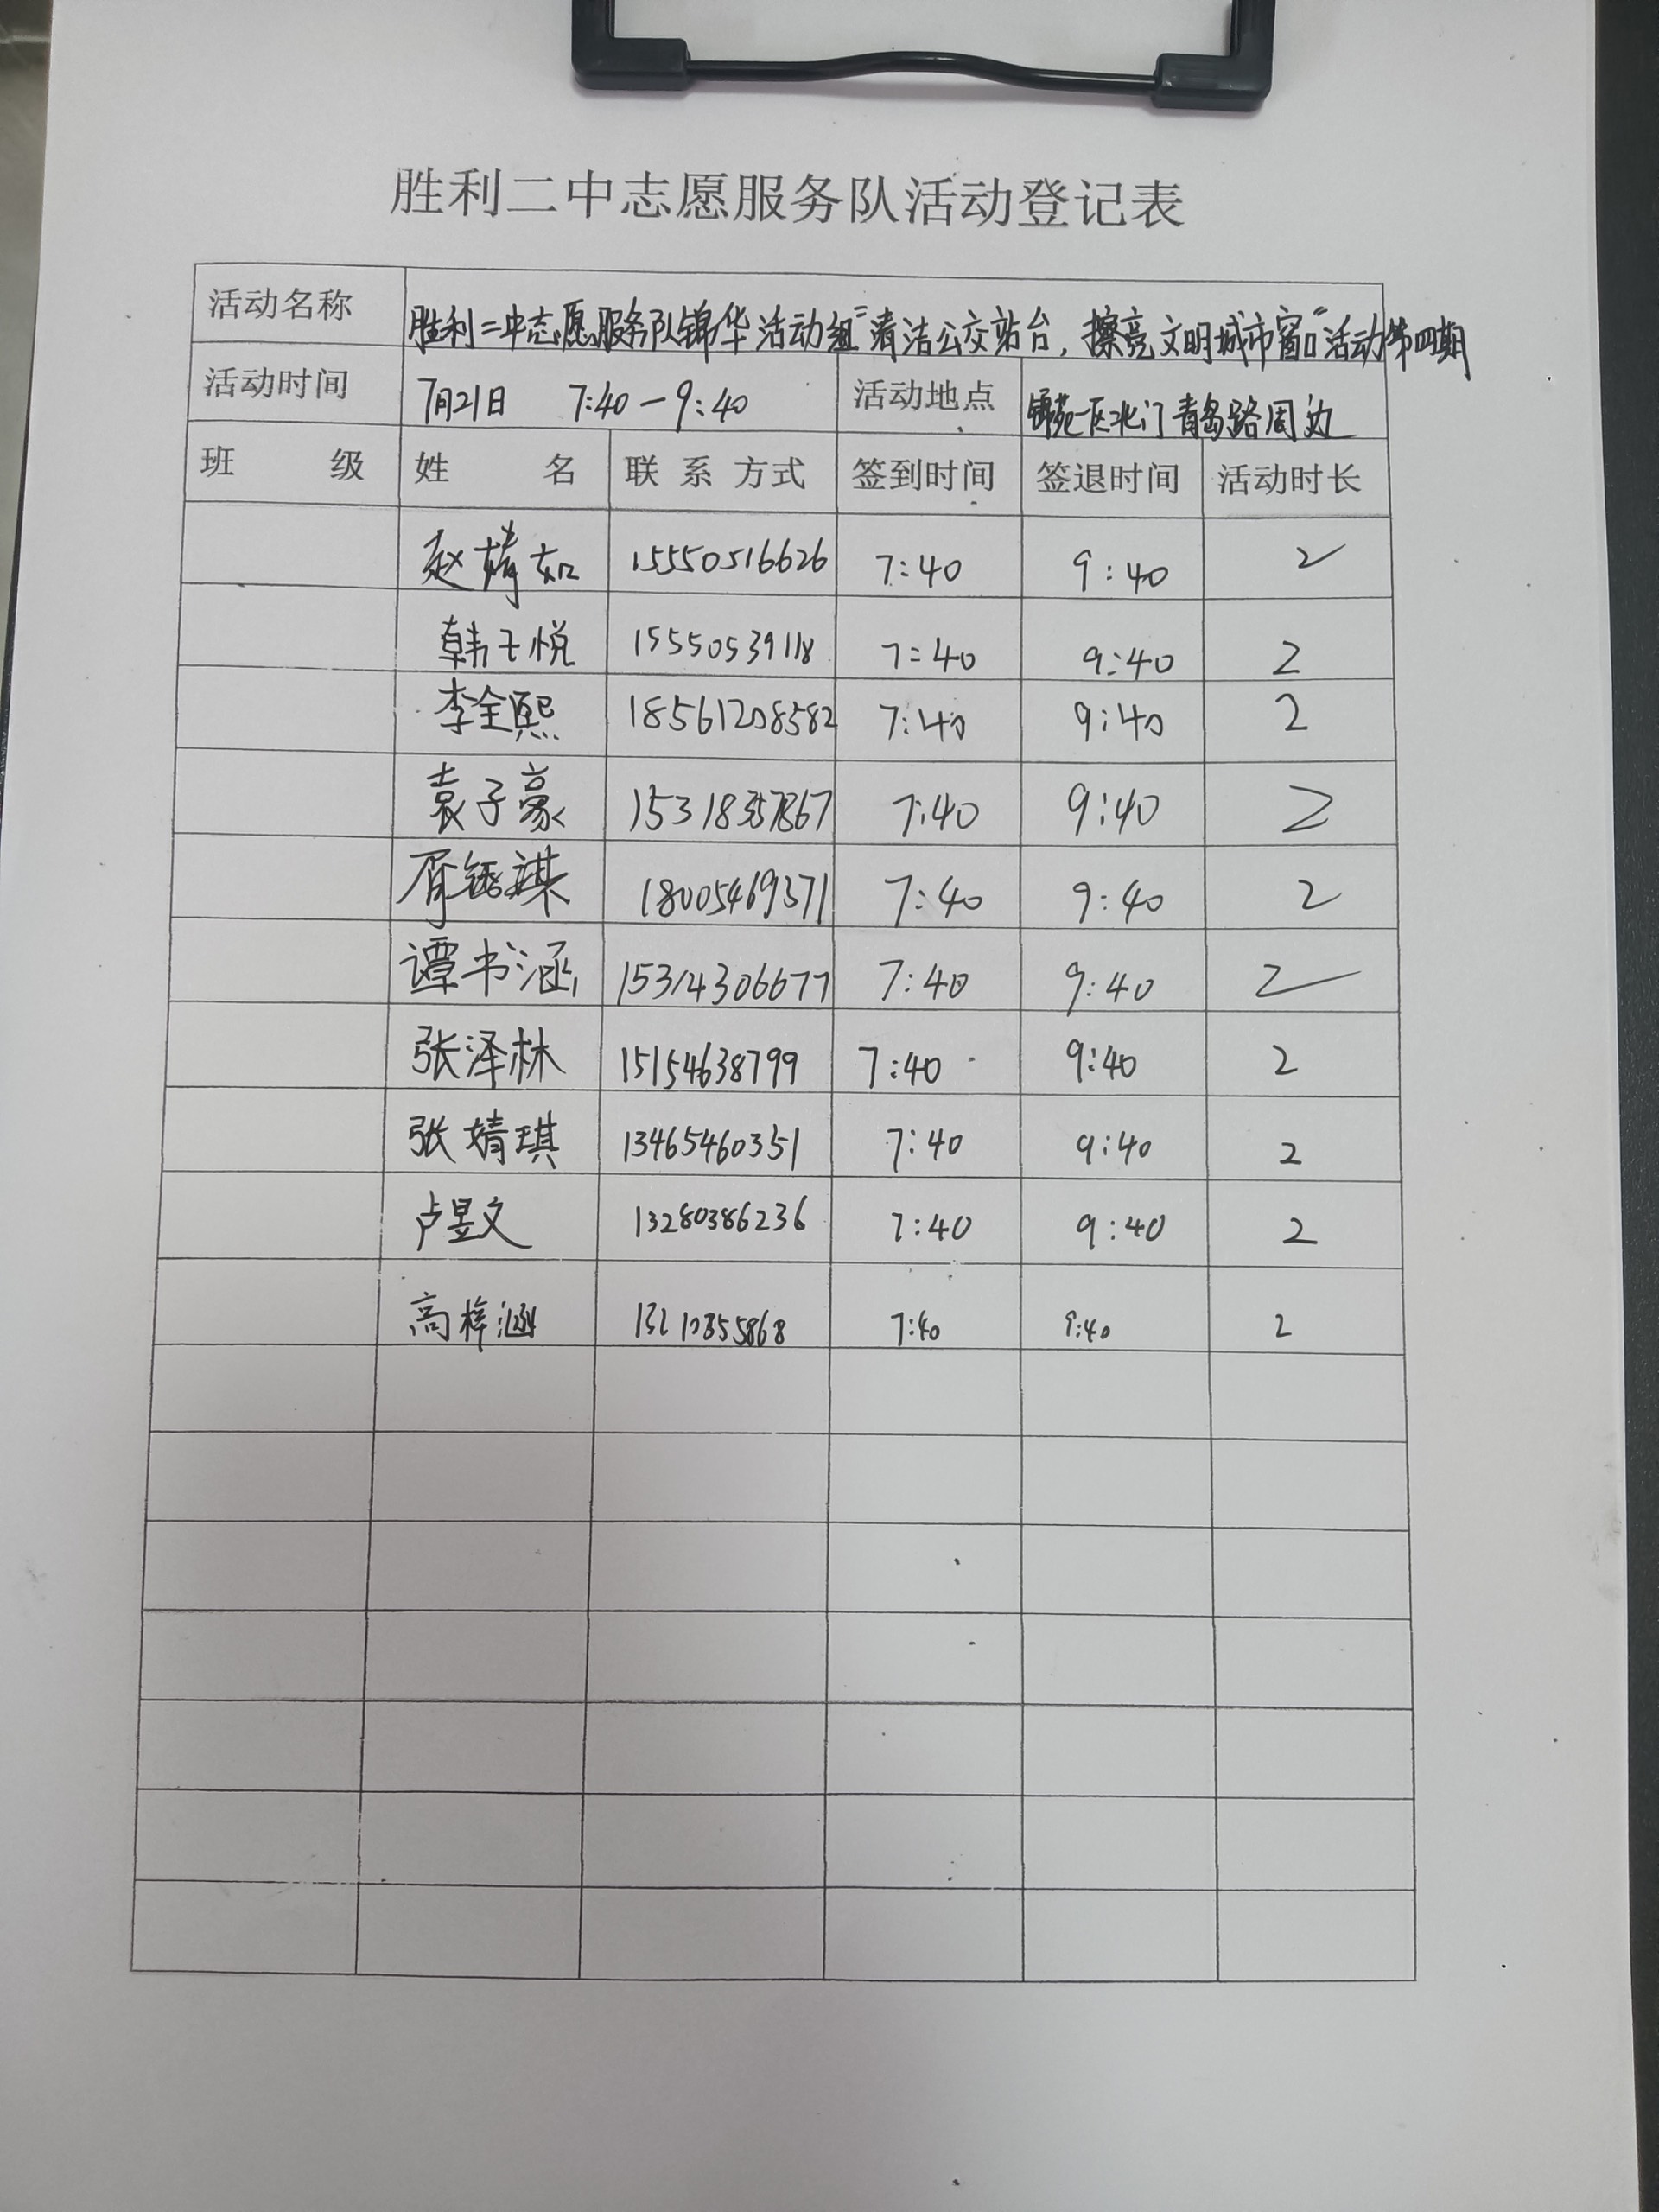 胜利二中志愿服务队活动登记表
活动名称 胜利二中志愿服务队锦华活动组“清洁公交站台，擦亮文明城市窗口”活动第四期
活动时间 7月21日 7:40—9:40 活动地点 锦苑一区北门青岛路周边
班 级 姓 名 联系方式 签到时间 签退时间 活动时长
赵婧如 15550516626 7:40 9:40 2
韩子悦 15550539118 7:40 9:40 2
李全熙 18561208582 7:40 9:40 2
袁子豪 7:40 9:40 2
18005469371 7:40 9:40 2
谭书涵 15314306677 7:40 9:40 2
张泽林 15154638799 7:40 9:40 2
张婧琪 13465460351 7:40 9:40 2
卢昱文 13280386236 7:40 9:40 2
高梓涵 7:40 9:40 2